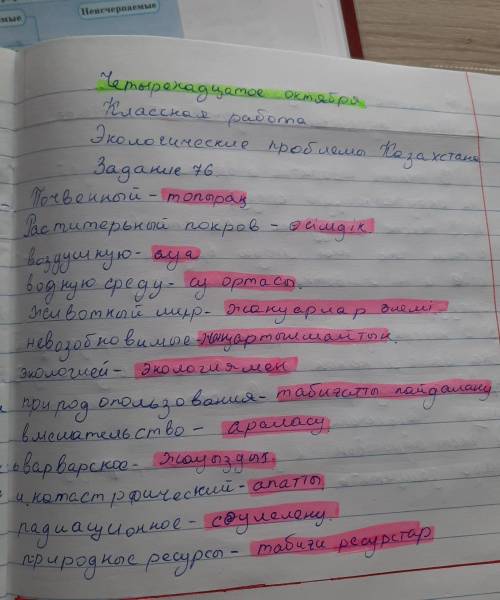 Неисчерпаемые
Четыренадцатое октября
Классная работа
Экологические проблемы Казахстана
Задание 76
Почвенный - топырақ
Растительный покров - өсімдік
воздушную - ауа
водную среду - су ортасы.
животный мир - жануарлар әлемі
невозобновимые - жаңартылмайтын.
экологией - экологиямен
природопользования - табиғатты пайдалану
вмешательство - араласу
варварское - жауыздық
катастрофический - апатты
радиационное - сәулелену.
природные ресурсы - табиғи ресурстар